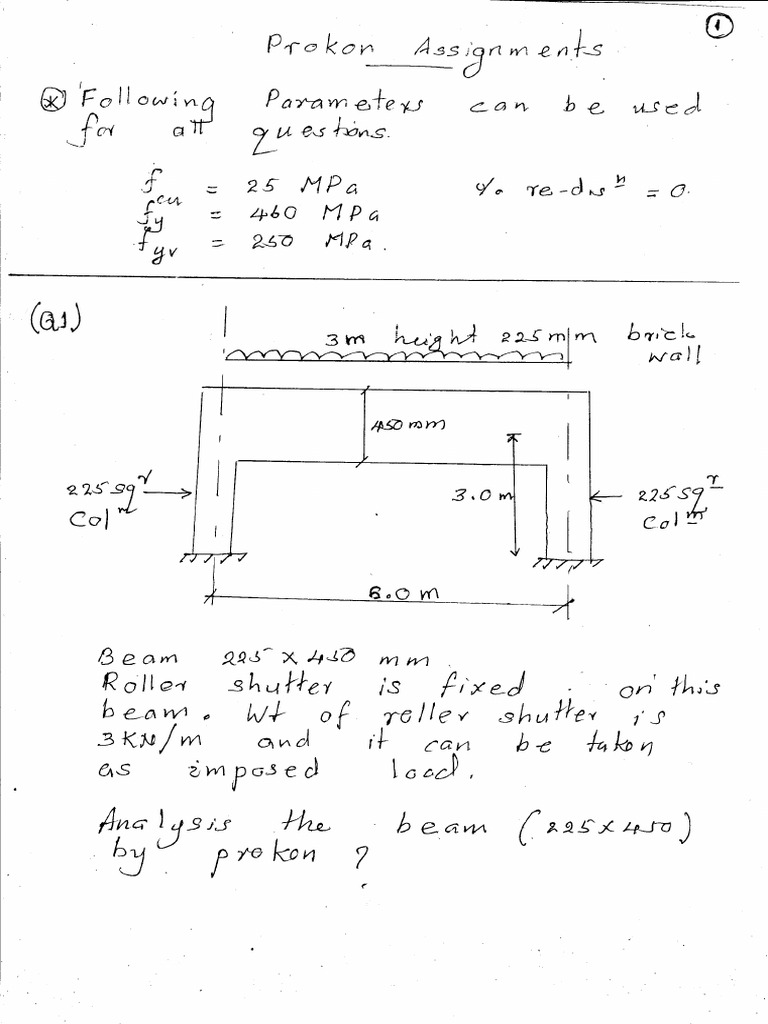 1
Prokon Assignments
* Following Parameters can be used
for all questions.
fcu = 25 MPa % re-dis n = 0.
fy = 460 MPa
fyv = 250 MPa.
(Q1)
3m height 225 mm brick
wall
450 mm
225 sqr
Col n
3.0 m
225 sqr
Col m
6.0 m
Beam 225 x 450 mm
Roller shutter is fixed on this
beam. Wt of roller shutter is
3 KN/m and it can be taken
as imposed load.
Analysis the beam (225 x 450)
by prokon ?